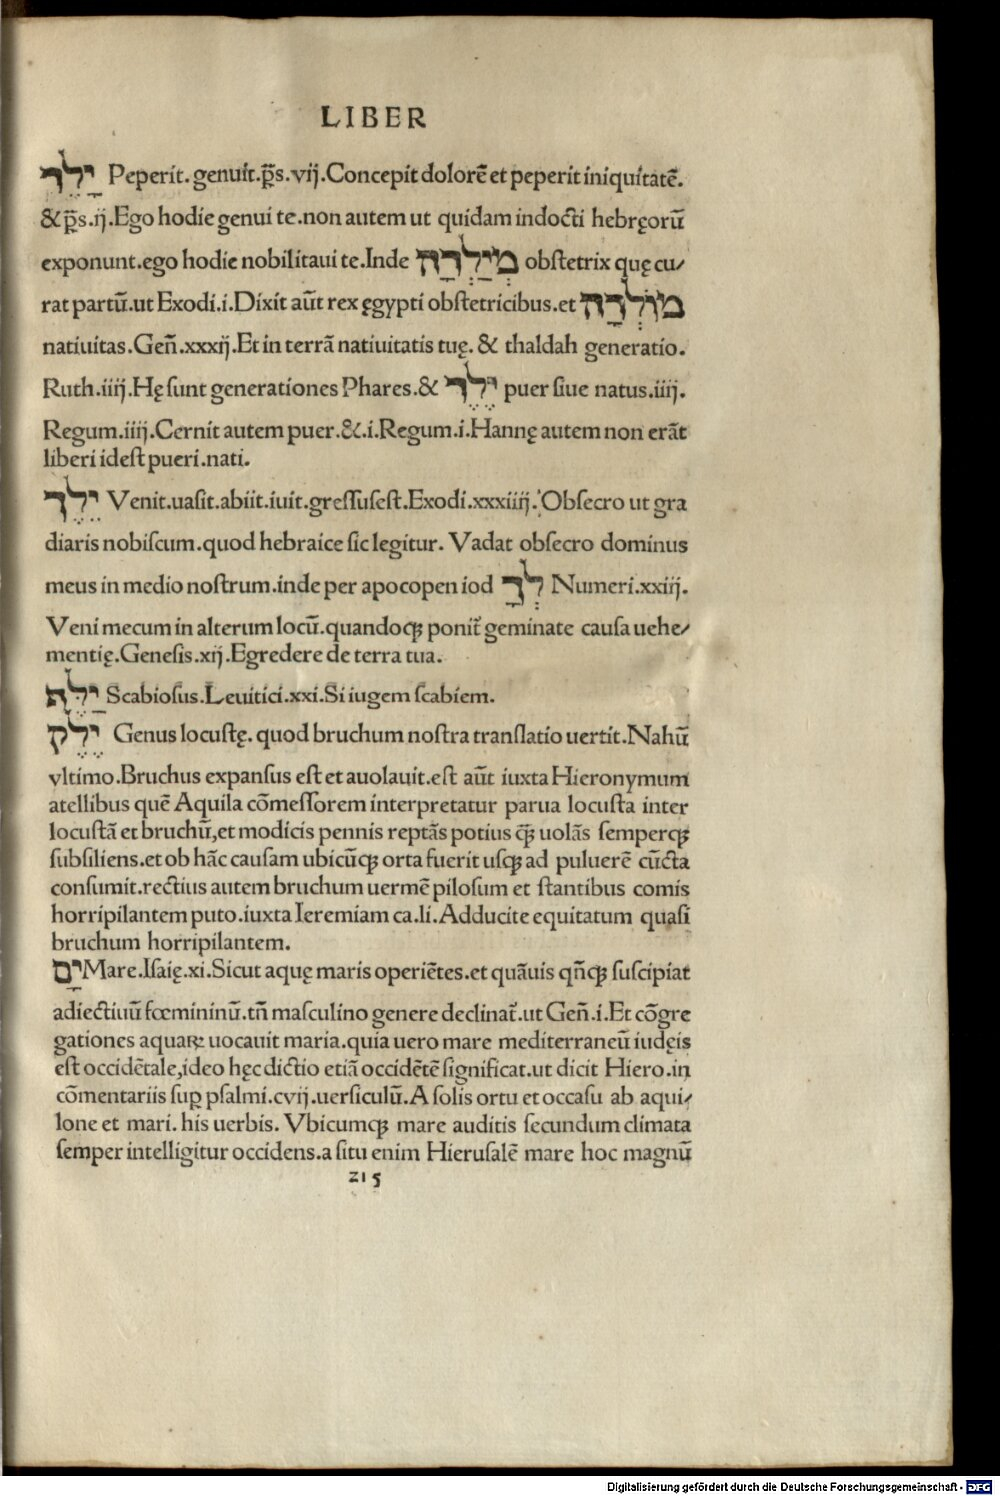 LIBER
יַלֶד Peperit. genuit.p̄s.vij.Concepit dolorē et peperit iniquitatē.
& p̄s.ij.Ego hodie genui te.non autem ut quidam indocti hebręorū
exponunt.ego hodie nobilitaui te.Inde מְיַלְדָה obstetrix quę cu⸗
rat partū.ut Exodi.i.Dixit aūt rex ęgypti obstetricibus.et מוֹלְדָה
natiuitas.Geñ.xxxij.Et in terrā natiuitatis tuę. & thaldah generatio.
Ruth.iiij.Hę sunt generationes Phares.& יֶלֶד puer siue natus.iiij.
Regum.iiij.Cernit autem puer.&.i.Regum.i.Hannę autem non erāt
liberi idest pueri.nati.
יֵלֶך Venit.uasit.abiit.iuit.gressusest.Exodi.xxxiiij.Obsecro ut gra
diaris nobiscum.quod hebraice sic legitur. Vadat obsecro dominus
meus in medio nostrum.inde per apocopen iod לְךָ Numeri.xxiij.
Veni mecum in alterum locū.quandoqꝫ ponit᷑ geminate causa uehe⸗
mentię.Genesis.xij.Egredere de terra tua.
יַלֶּת Scabiosus.Leuitici.xxi.Si iugem scabiem.
יֶלֶק Genus locustę. quod bruchum nostra translatio uertit.Nahū
vltimo.Bruchus expansus est et auolauit.est aūt iuxta Hieronymum
atellibus quē Aquila cōmessorem interpretatur parua locusta inter
locustā et bruchū,et modicis pennis reptās potius q̄ꝫ uolās semperqꝫ
subsiliens.et ob hāc causam ubicūqꝫ orta fuerit usqꝫ ad puluerē cūcta
consumit.rectius autem bruchum uermē pilosum et stantibus comis
horripilantem puto.iuxta Ieremiam ca.li.Adducite equitatum quasi
bruchum horripilantem.
יָם Mare.Isaię.xi.Sicut aquę maris operiētes.et quāuis qñqꝫ suscipiat
adiectiuū fœmininū.tñ masculino genere declinat᷑.ut Geñ.i.Et cōgre
gationes aquaꝝ uocauit maria.quia uero mare mediterraneū iudęis
est occidētale,ideo hęc dictio etiā occidētē significat.ut dicit Hiero.in
cōmentariis suꝑ psalmi.cvij.uersiculū.A solis ortu et occasu ab aqui⸗
lone et mari. his uerbis. Vbicumqꝫ mare auditis secundum climata
semper intelligitur occidens.a situ enim Hierusalē mare hoc magnū
215
Digitalisierung gefördert durch die Deutsche Forschungsgemeinschaft - DFG